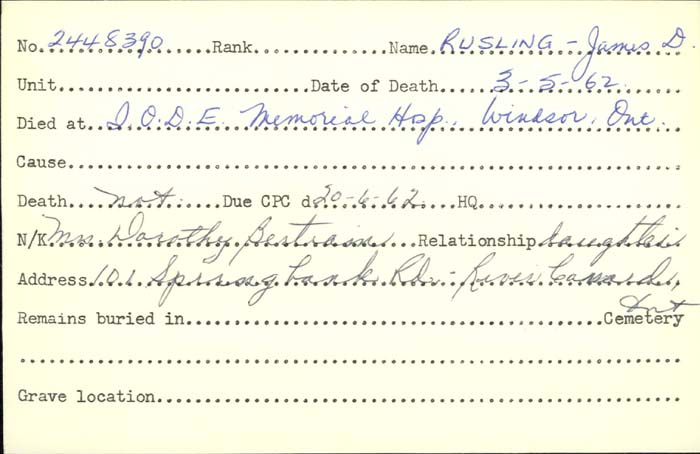 No. 2448390 Rank Name. RUSLING - James D.
Unit Date of Death 3-5-62
Died at I.O.D.E. Memorial Hosp., Windsor, Ont.
Cause
Death not Due CPC d 20-6-62 HQ
N/K Mrs Dorothy Bertram Relationship daughter
Address 101 Springbank Rd. - River Canard,
Ont
Remains buried in Cemetery
Grave location